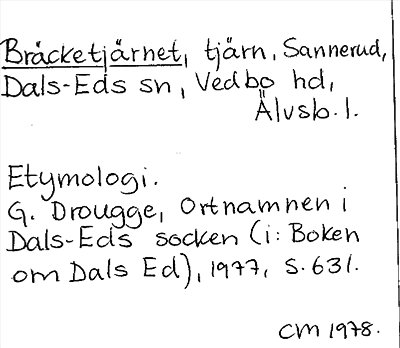 Bråcketjärnet, tjärn, Sannerud,
Dals-Eds sn, Vedbo hd,
Älvsb. l.
Etymologi.
G. Drougge, Ortnamnen i
Dals-Eds socken (i: Boken
om Dals Ed), 1977, s. 631.
CM 1978.